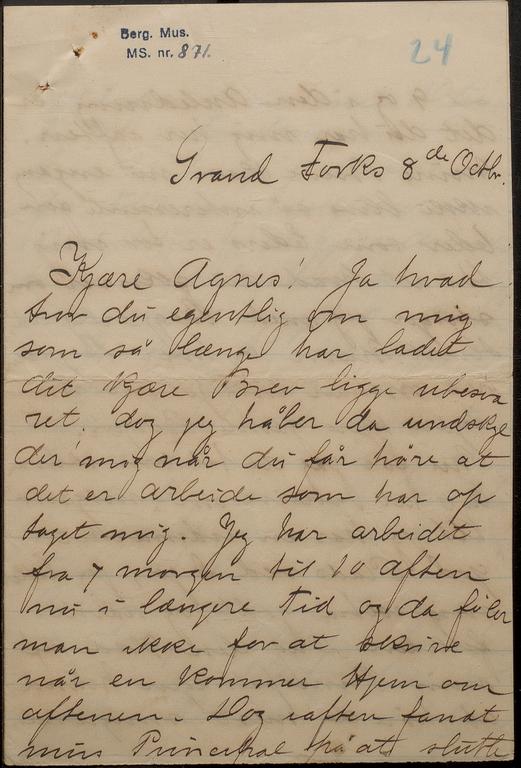 Berg. Mus.
MS. nr. 871.
24
Grand Forks 8de Octbr.
Kjære Agnes! Ja hvad
tror du egentlig om mig
som så længe har ladet
dit kjære Brev ligge ubesva
ret, dog jeg håber du undskyl
der mig når du får høre at
det er arbeide som har op
taget mig. Jeg har arbeidet
fra 7 morgen til 10 aften
nu i længere tid og da føler
man ikke for at skrive
når en kommer Hjem om
aftenen. Dog iaften fandt
min Principal på at slutte